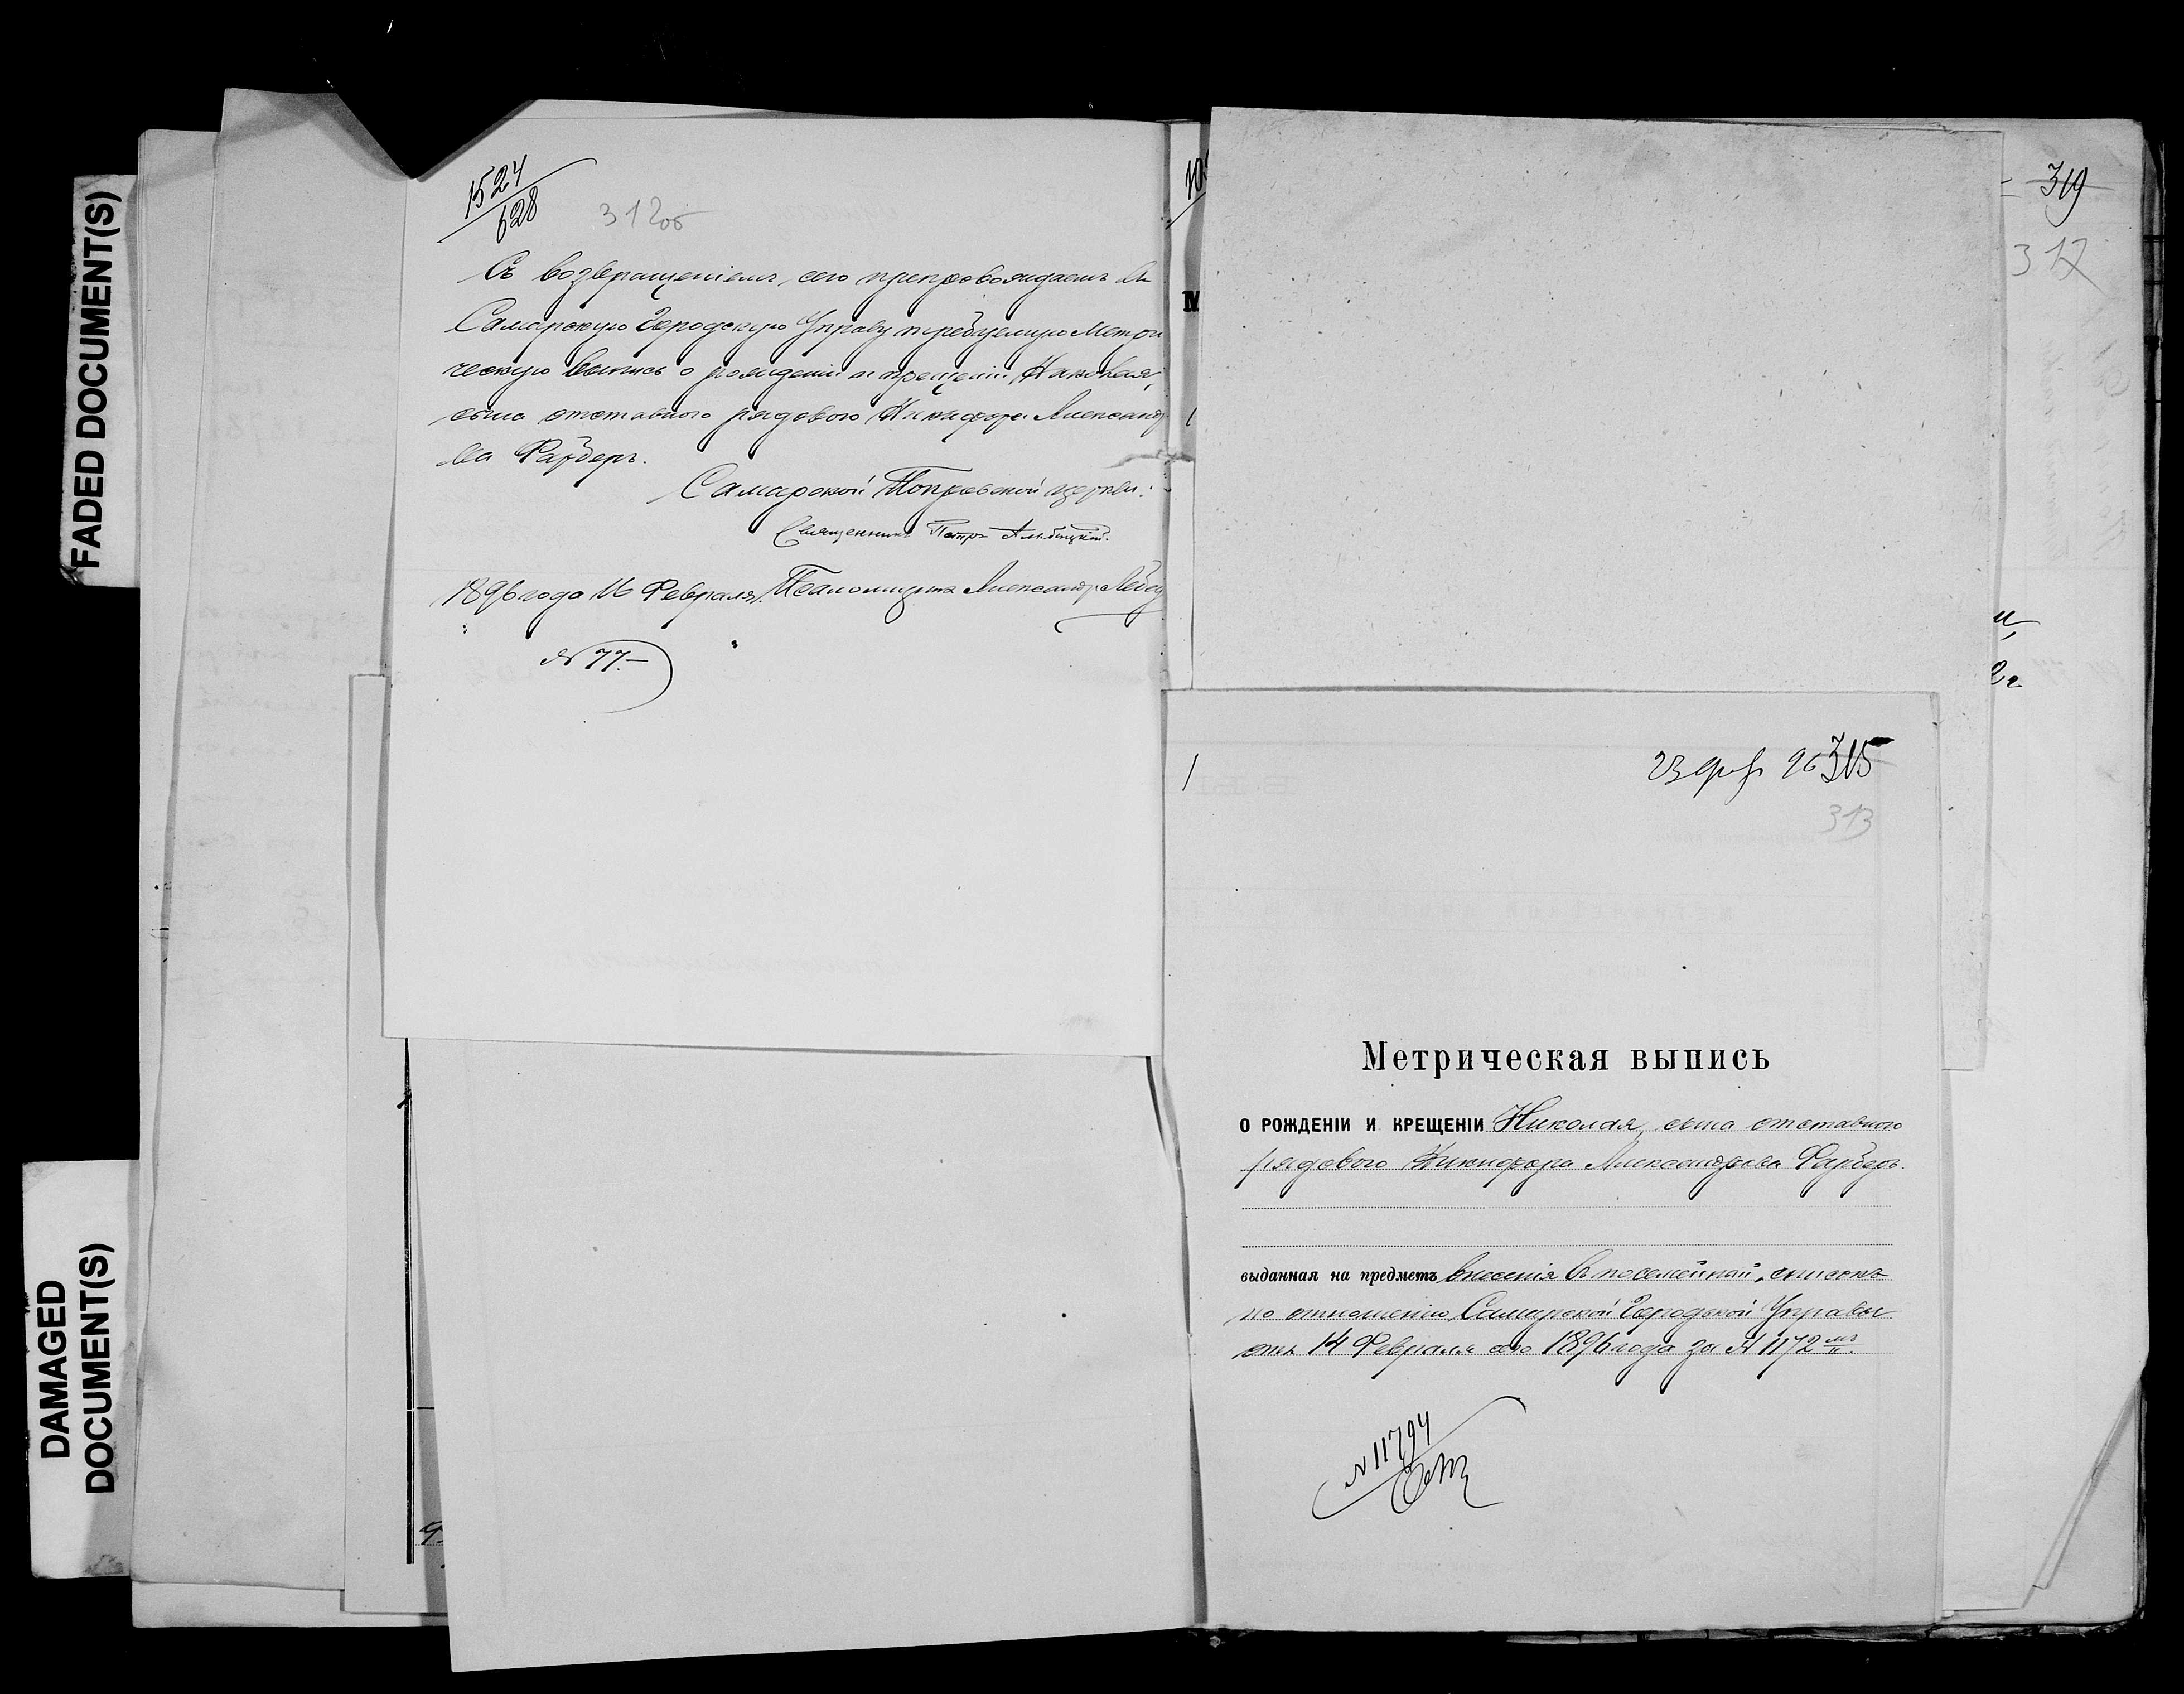 FADED DOCUMENT(S)
DAMAGED
DOCUMENT(S)
1524
628
312 об
Съ возвращеніемъ сего препровождаемъ въ
Самарскую Городскую Управу требуемую Метри
ческую выпись о рожденіи и крещеніи Николая,
сына отставного рядового Никифора Александ
ва Фарберъ.
Самарской Покровской церкви:
Священникъ Петръ
1896 года 16 Февраля. Псаломщикъ Александръ
№ 77.—
319
317
23 фев 96 315
313
Метрическая выпись
О РОЖДЕНІИ И КРЕЩЕНІИ Николая, сына отставного
рядового Никифора Александрова Фарберъ.
выданная на предметъ внесенія въ посемейный списокъ
по отношенію Самарской Городской Управы
отъ 14 Февраля сего 1896 года за № 1172
№ 11794